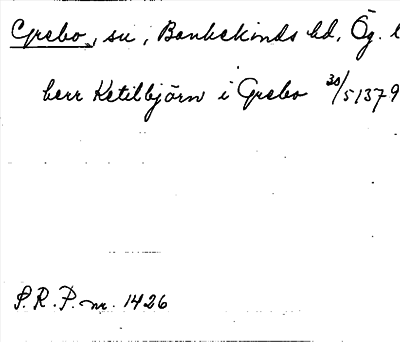 Grebo, sn, Bankekinds hd, Ög.
herr Ketilbjörn i Grebo 30/5 1379
S.R.P. nr. 1426